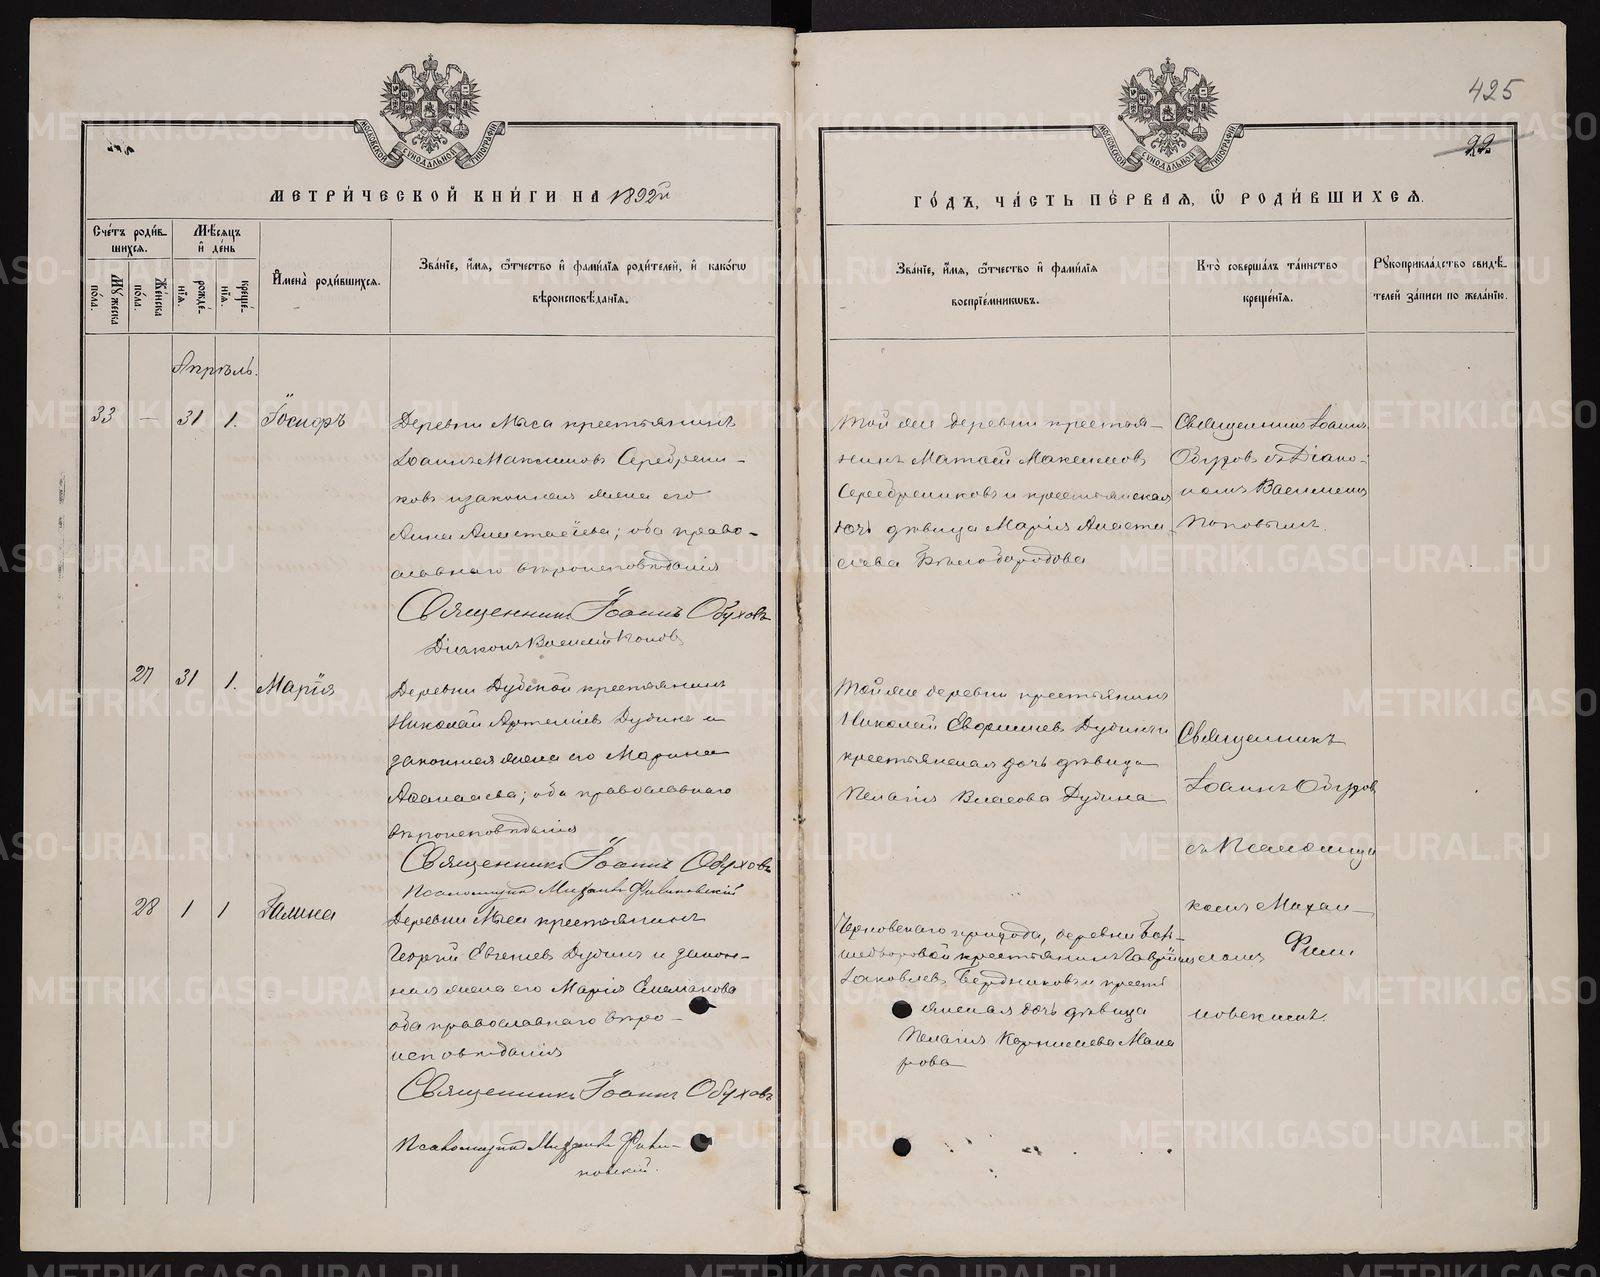 425
22
МОСКОВСКОЙ СѴНОДАЛЬНОЙ ТИПОГРАФІИ
МОСКОВСКОЙ СѴНОДАЛЬНОЙ ТИПОГРАФІИ
МЕТРИ́ЧЕСКОЙ КНИ́ГИ НА 1892й
ГО́ДЪ, ЧА́СТЬ ПЕ́РВАЯ, Ѿ РОДИ́ВШИХСЯ.
Сче́тъ роди́в-
шихся.
Мужеска по́ла.
Же́нска по́ла.
Мѣ́сяцъ
и҆ де́нь
рожде́-
нїя.
креще́-
нїя.
И҆мена̀ роди́вшихся.
Зва́нїе, и҆́мя, ѻ҆́тчество и҆ фами́лїя роди́телей, и҆ како́гѡ
вѣроисповѣ́данїя.
Зва́нїе, и҆́мя, ѻ҆́тчество и҆ фами́лїя
воспрїе́мникѡвъ.
Кто̀ соверша́лъ та́инство
креще́нїя.
Рꙋкоприкла́дство свидѣ́-
телей за́писи по жела́нїю.
Апрѣль.
33 — 31 1. Іосифъ
Деревни Мыса крестьянинъ
Іоаннъ Максимовъ Серебрени-
ковъ и законная жена его
Анна Анастасіева; оба право-
славнаго вѣроисповѣданія
Священникъ Іоаннъ Обуховъ
Діаконъ Василій Поповъ
Той же деревни крестья-
нинъ Матѳей Максимовъ
Серебрениковъ и крестьянская
дочь дѣвица Марія Анаста
сіева Бѣлобородова
Священникъ Іоаннъ
Обуховъ съ Діако-
номъ Василіемъ
Поповымъ.
27 31 1. Марія
Деревни Дубской крестьянинъ
Николай Артеміевъ Дубинъ и
законная жена его Марина
Аѳанасіева; оба православнаго
вѣроисповѣданія
Священникъ Іоаннъ Обуховъ
Псаломщикъ Михаилъ Филиновскій
Той же деревни крестьянинъ
Николай Евфиміевъ Дубинъ и
крестьянская дочь дѣвица
Пелагія Власова Дубина
Священникъ
Іоаннъ Обухов
съ Псаломщи
комъ Михаи-
ломъ Фили
новскимъ.
28 1 1 Галина
Деревни Мыса крестьянинъ
Георгій Евгеніевъ Дубинъ и закон-
ная жена его Марія
оба православнаго вѣро-
исповѣданія
Священникъ Іоаннъ Обуховъ
Псаломщикъ Михаилъ Фили-
новскій.
прихода, деревни
крестьянинъ Гавріилъ
Іаковлевъ Бердниковъ и кресть
янская дочь дѣвица
Пелагія Корниліева Мака
рова
METRIKI.GASO-URAL.RU